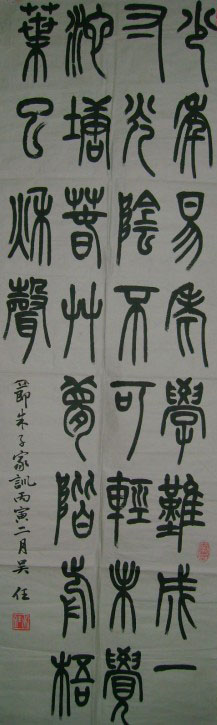 少年易老學難成一
寸光陰不可輕未覺
池塘春艸夢階前梧
葉已秌聲
節朱子家訓丙寅二月吴任